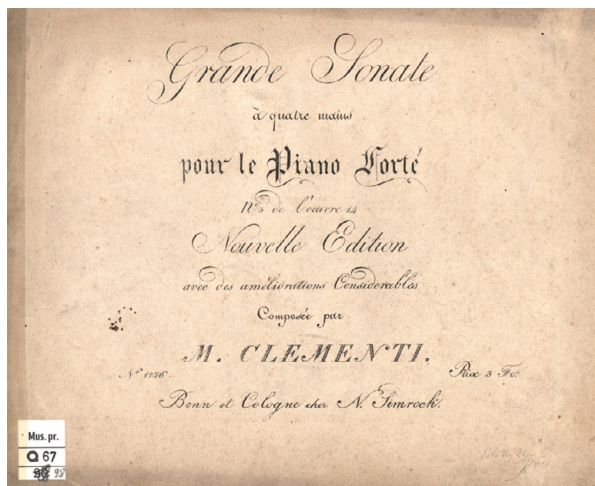 Grande Sonate
à quatre mains
pour le Piano Forté
No. 3 de l'oeuvre 14
Nouvelle Edition
avec des améliorations Considerables
Composée par
M. CLEMENTI.
No. 1276. Prix 3 Fcs
Bonn et Cologne chez N. Simrock.
Mus. pr.
Q 67
98